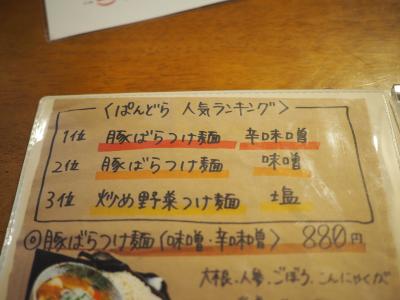 〈ぱんどら 人気ランキング〉
1位 豚ばらつけ麺 辛味噌
2位 豚ばらつけ麺 味噌
3位 炒め野菜つけ麺 塩
◎豚ばらつけ麺(味噌・辛味噌) 880円
大根、人参、ごぼう、こんにゃくが